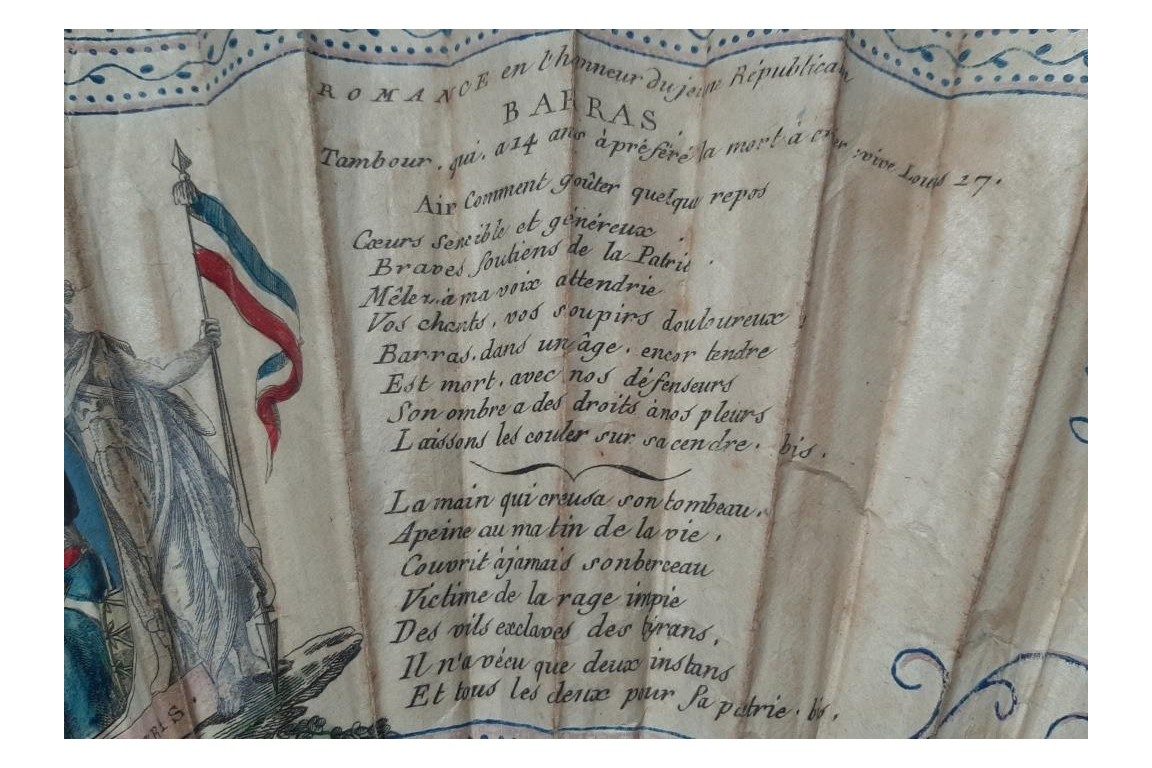 ROMANCE en l'honneur du jeune Républicain
BARRAS
Tambour, qui, a 14 ans à préféré la mort à crier, vive Louis 17.
Air Comment goûter quelque repos
Cœurs sencible et généreux,
Braves soutiens de la Patrie.
Mêlez, à ma voix attendrie
Vos chants, vos soupirs douloureux,
Barras, dans un âge, encor tendre
Est mort, avec nos défenseurs
Son ombre a des droits à nos pleurs
Laissons les couler sur sa cendre. bis.
La main qui creusa son tombeau,
Apeine au matin de la vie,
Couvrit à jamais son berceau
Victime de la rage impie
Des vils exclaves des tyrans,
Il n'a vécu que deux instans
Et tous les deux pour Sa patrie. bis.
RIS.